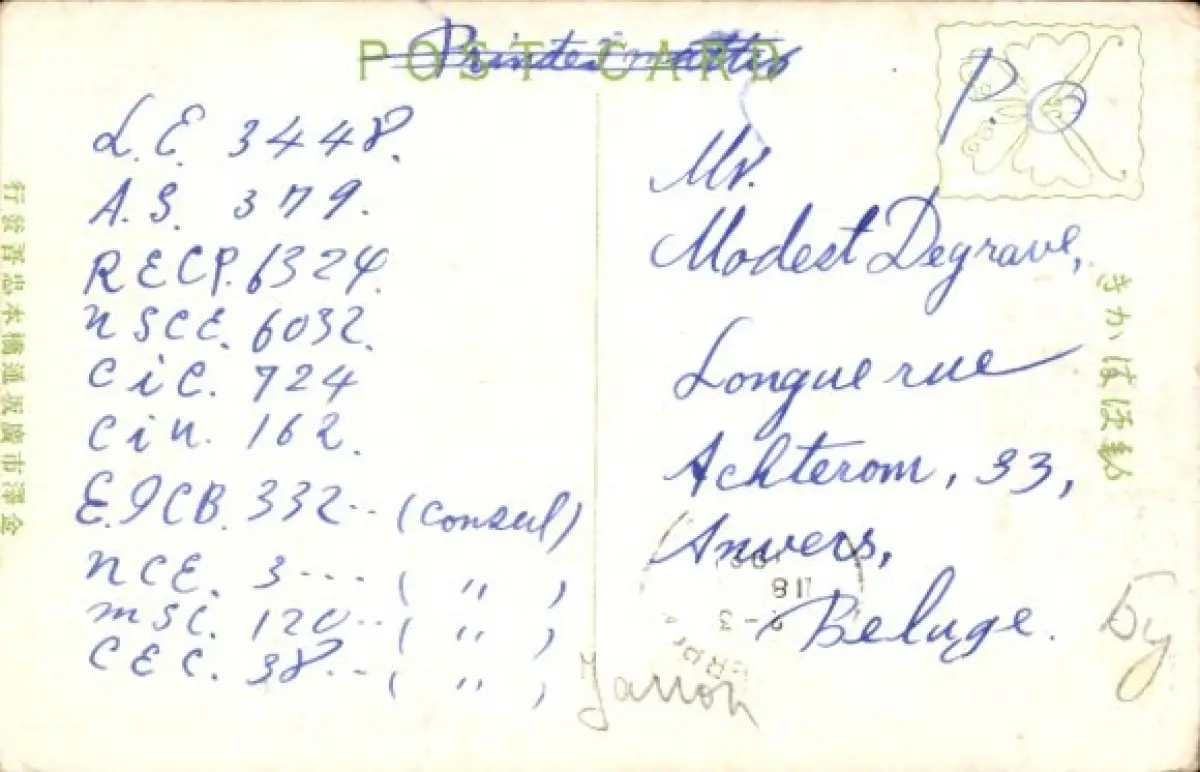 POST CARD
Printed matter
P.O
L.E. 3448.
A.S. 379.
RECP. 6324.
NSCE. 6032.
CiC. 724
Cin. 162.
E.ICB. 332-- (Consul)
NCE. 3--- ( " )
MSC. 120-- ( " )
CEC. 38-- ( " )
Mr.
Modest Degrave,
Longue rue
Achterom, 33,
Anvers,
Beluge.
きがは便郵
金澤市廣坂通橋本確文
By